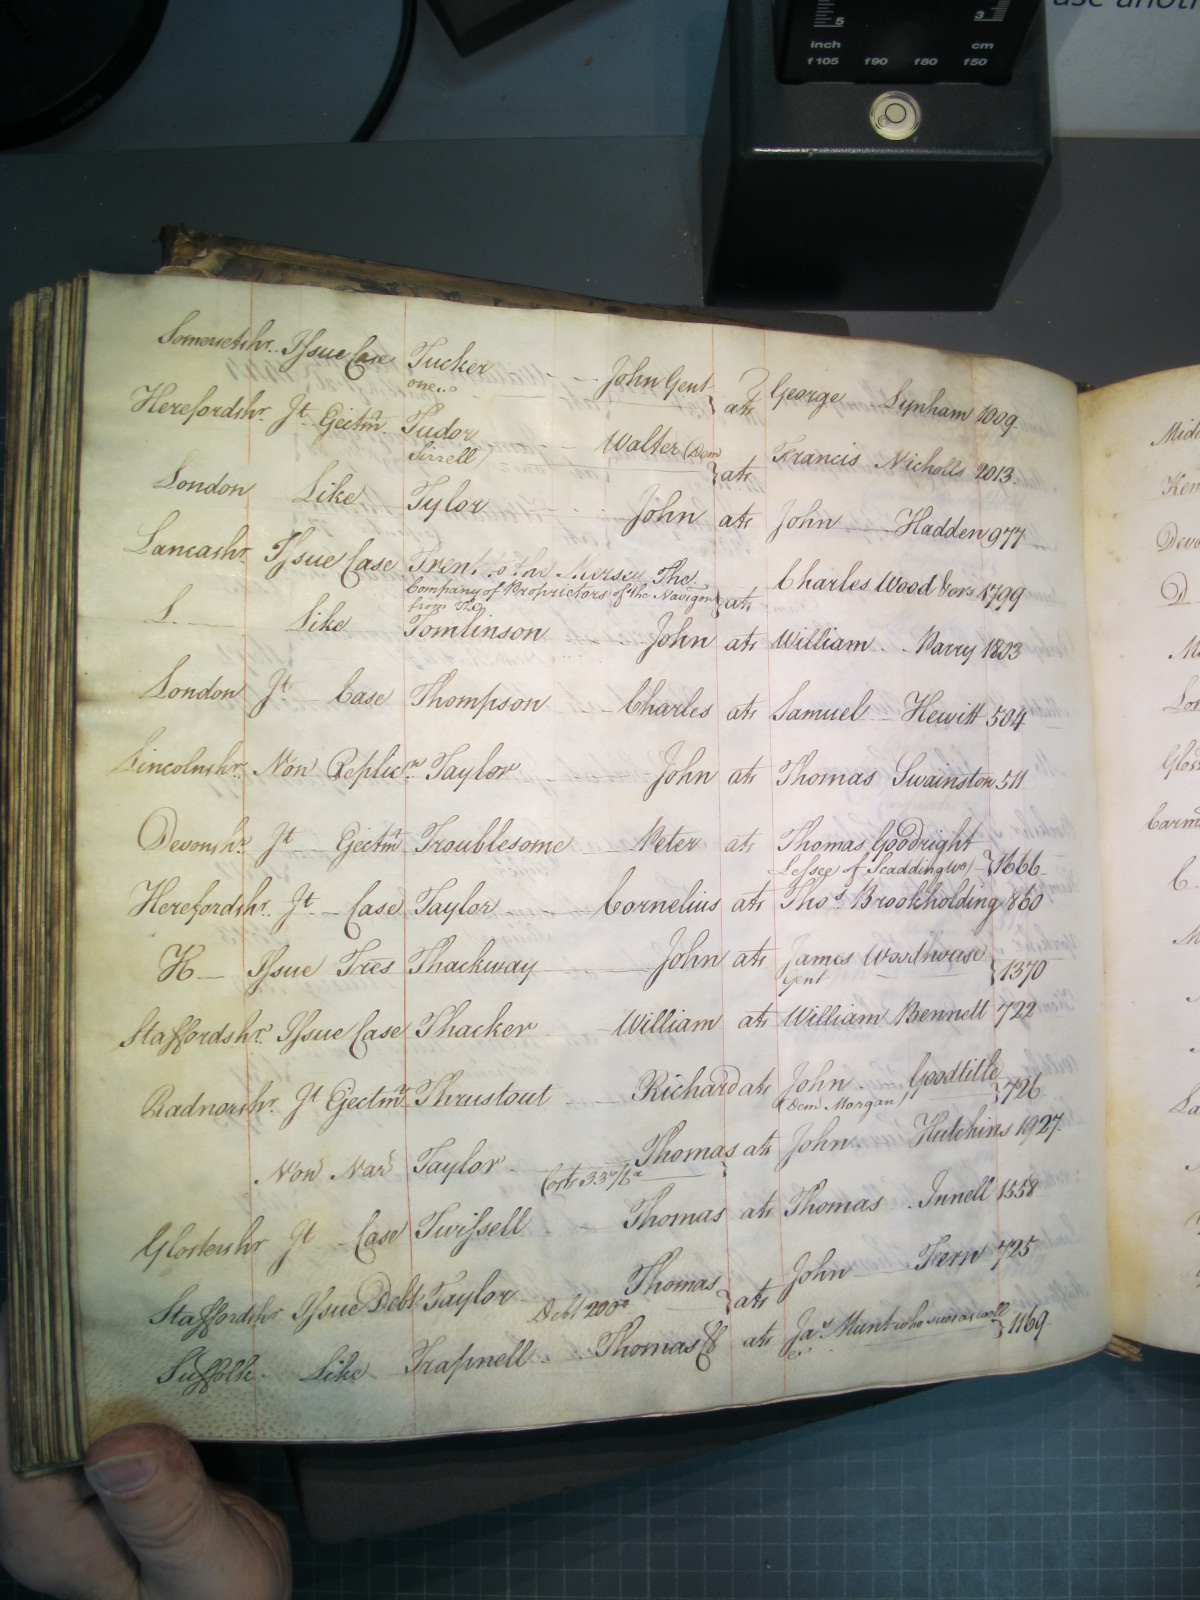 use anoth
5 3
inch cm
f105 f90 f80 f50
PHILIPS
Somersetshr. Issue Case Tucker John Gent } ats George Lynham 1009
one &c
Herefordshr. Jt. Ejectmt. Tudor Walter (Dem } ats Francis Nicholls 2013
Sirrell)
London Like Tylor John ats John Hadden 977
Lancashr. Issue Case Trent to the Mersey The } ats Charles Wood & ors 1799
Company of Proprietors of the Navigon
from The
L. Like Tomlinson John ats William Parry 1803
London Jt. Case Thompson Charles ats Samuel Hewitt 504
Lincolnshr. Non Replicn. Taylor John ats Thomas Swainston 511
Devonshr. Jt Ejectmt Troublesome Peter ats Thomas Goodright } 1666
Lessee of Scaddingwo)
Herefordshr. Jt. Case Taylor Cornelius ats Thos. Brookholding 860
H Issue Tres Thackway John ats James Woodhouse } 1370
Gent
Staffordshr. Issue Case Thacker William ats William Bennett 722
Radnorshr. Jt Ejectmt. Thrustout Richard ats John Goodtitle } 726
(Dem Morgan)
Non Nar Taylor Thomas ats John Hutchins 1927
Costs
Glostershr Jt Case Twissell Thomas ats Thomas Innell 1558
Staffordshr Issue Debt Taylor Thomas } ats John Fern 725
Debt 200£
Suffolk Like Trapnell Thomas ats Jas. Munt who sues as well } 1169
&c
Midd
Ken
Devo
D
M
Lon
Glos
Carm
C
M
La